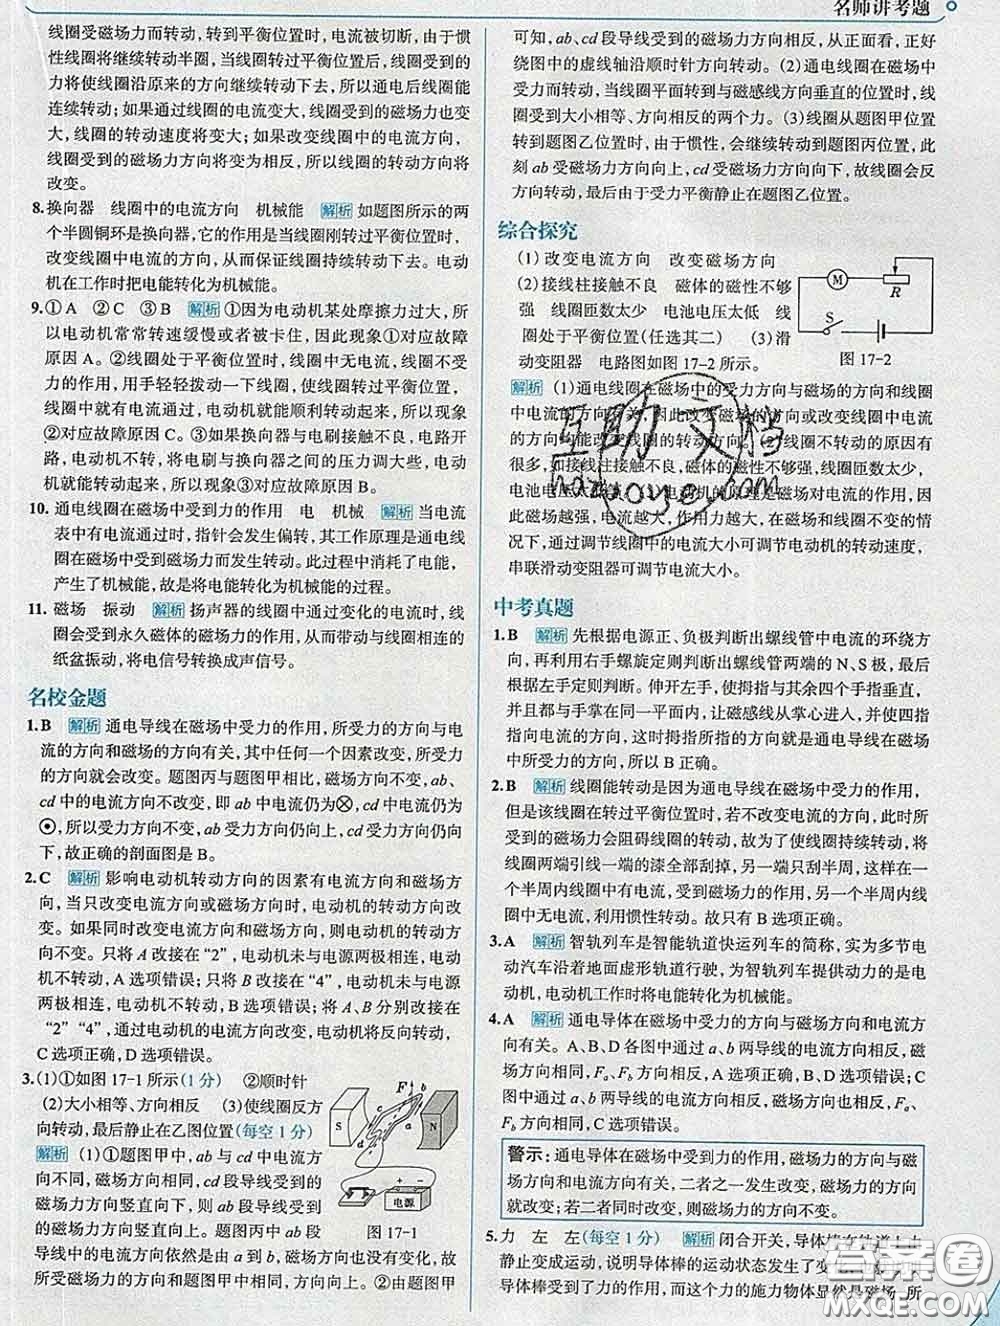 名师讲考题
线圈受磁场力而转动，转到平衡位置时，电流被切断，由于惯
性线圈将继续转动半圈，当线圈转过平衡位置后，线圈受到的
力将使线圈沿原来的方向继续转动下去，所以通电后线圈能
连续转动；如果通过线圈的电流变大，线圈受到的磁场力也变
大，线圈的转动速度将变大；如果改变线圈中的电流方向，
线圈受到的磁场力方向将变为相反，所以线圈的转动方向将
改变。
8.换向器 线圈中的电流方向 机械能 解析 如题图所示的两
个半圆铜环是换向器，它的作用是当线圈刚转过平衡位置时，
改变线圈中电流的方向，从而保证线圈持续转动下去。电动
机在工作时把电能转化为机械能。
9.①A ②C ③B 解析 ①因为电动机某处摩擦力过大，所
以电动机常常转速缓慢或者被卡住，因此现象①对应故障
原因 A。②线圈处于平衡位置时，线圈中无电流，线圈不受
力的作用，用手轻轻拨动一下线圈，使线圈转过平衡位置，
线圈中就有电流通过，电动机就能顺利转动起来，所以现象
②对应故障原因 C。③如果换向器与电刷接触不良，电路开
路，电动机不转，将电刷与换向器之间的压力调大些，电动机
就能转动起来，所以现象③对应故障原因 B。
10.通电线圈在磁场中受到力的作用 电 机械 解析 当电流
表中有电流通过时，指针会发生偏转，其工作原理是通电线
圈在磁场中受到磁场力而发生转动。此过程中消耗了电能，
产生了机械能，故是将电能转化为机械能的过程。
11.磁场 振动 解析 扬声器的线圈中通过变化的电流时，线
圈会受到永久磁体的磁场力的作用，从而带动与线圈相连的
纸盆振动，将电信号转换成声信号。
名校金题
1.B 解析 通电导线在磁场中受力的作用，所受力的方向与电
流的方向和磁场的方向有关，其中任何一个因素改变，所受力
的方向就会改变。题图丙与题图甲相比，磁场方向不变，ab、
cd 中的电流方向不改变，即 ab 中电流仍为⊗，cd 中电流仍为
⊙，所以受力方向不变，ab 受力方向仍向上，cd 受力方向仍向
下，故正确的剖面图是 B。
2.C 解析 影响电动机转动方向的因素有电流方向和磁场方
向，当只改变电流方向或磁场方向时，电动机的转动方向改
变。如果同时改变电流方向和磁场方向，则电动机的转动方
向不变。只将 A 改接在“2”，电动机未与电源两极相连，电动
机不转动，A 选项错误；只将 B 改接在“4”，电动机未与电源
两极相连，电动机不转动，B 选项错误；将 A、B 分别改接在
“2”“4”，通过电动机的电流方向改变，电动机将反向转动，
C 选项正确，D 选项错误。
3.(1)①如图 17-1 所示(1 分) ②顺时针
(2)大小相等、方向相反 (3)使线圈反方
向转动，最后静止在乙图位置(每空 1 分)
解析 (1)①题图甲中，ab 与 cd 中电流方
向不同，磁场方向相同，cd 段导线受到的
磁场力方向竖直向下，则 ab 段导线受到
的磁场力方向竖直向上。题图丙中 ab 段
导线中的电流方向依然是由 a 到 b，磁场方向也没有变化，故
所受磁场力的方向还与题图甲中相同，竖直向上。②由题图甲
F b c a d S N 电源
图 17-1
可知，ab、cd 段导线受到的磁场力方向相反，从正面看，正好
绕图中的虚线轴沿顺时针方向转动。(2)通电线圈在磁场中
受力而转动，当线圈平面转到与磁感线方向垂直的位置时，线
圈受到大小相等、方向相反的两个力。(3)线圈从题图甲位置
转到题图乙位置时，由于惯性，会继续转动到题图丙位置，此
刻 ab 受磁场力方向向上，cd 受磁场力方向向下，故线圈会反
方向转动，最后由于受力平衡静止在题图乙位置。
综合探究
(1)改变电流方向 改变磁场方向
(2)接线柱接触不良 磁体的磁性不够
强 线圈匝数太少 电池电压太低 线
圈处于平衡位置(任选其二) (3)滑
动变阻器 电路图如图 17-2 所示。
M R S
图 17-2
解析 (1)通电线圈在磁场中的受力方向与磁场的方向和线圈
中电流的方向有关，因此改变磁场的方向或改变线圈中电流
的方向均能改变线圈的转动方向。(2)线圈不转动的原因有
很多，如接线柱接触不良，磁体的磁性不够强，线圈匝数太少，
电池电压太低等。(3)电动机的原理是磁场对电流的作用，因
此磁场越强，电流越大，作用力越大，在磁场和线圈不变的情
况下，通过调节线圈中的电流大小可调节电动机的转动速度，
串联滑动变阻器可调节电流大小。
中考真题
1.B 解析 先根据电源正、负极判断出螺线管中电流的环绕方
向，再利用右手螺旋定则判断出螺线管两端的 N、S 极，最后
根据左手定则判断。伸开左手，使拇指与其余四个手指垂直，
并且都与手掌在同一平面内，让磁感线从掌心进入，并使四指
指向电流的方向，这时拇指所指的方向就是通电导线在磁场
中所受力的方向，所以 B 正确。
2.B 解析 线圈能转动是因为通电导线在磁场中受力的作用，
但是该线圈在转过平衡位置时，若不改变电流的方向，此时所
受到的磁场力会阻碍线圈的转动，故为了使线圈持续转动，将
线圈两端引线一端的漆全部刮掉，另一端只刮半周，这样在一
个半周内线圈中有电流，受到磁场力的作用，另一个半周内线
圈中无电流，利用惯性转动。故只有 B 选项正确。
3.A 解析 智轨列车是智能轨道快运列车的简称，实为多节电
动汽车沿着地面虚形轨道行驶，为智轨列车提供动力的是电
动机，电动机工作时将电能转化为机械能。
4.A 解析 通电导体在磁场中受力的方向与磁场方向和电流方
向有关。A、B、D 各图中通过 a、b 两导线的电流方向相反，磁
场方向相同，Fa、Fb 方向相反，A 选项正确，B、D 选项错误；C
图中通过 a、b 两导线的电流方向相反，磁场方向也相反，Fa、
Fb 方向相同，C 选项错误。
警示：通电导体在磁场中受到力的作用，磁场力的方向与磁
场方向和电流方向有关，二者之一发生改变，磁场力的方向
就改变；若二者同时改变，则磁场力的方向不变。
5.力 左 左(每空 1 分) 解析 闭合开关，导体棒在轨道上由
静止变成运动，说明导体棒的运动状态发生了变化，
导体棒受到了力的作用，而这个力的施力物体显然是磁场，所
互助文档
hzhuoye.com
答案圈
MXQE.COM